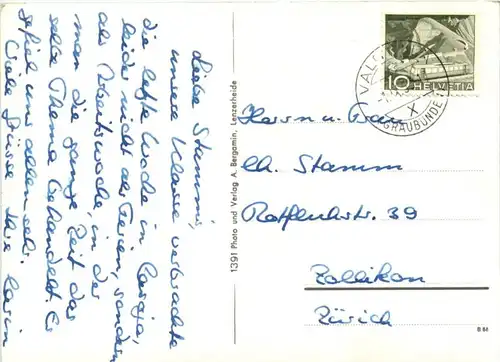 Liebe Stamm's,
unsere Klasse verbrachte
die letzte Woche in
leider nicht als Ferien, sondern
als Arbeitswoche, in der
man die ganze Zeit das
selbe Thema behandelt. Es
gefiel uns allen sehr.
Liebe Grüsse Ihre
1391 Photo und Verlag A. Bergamin, Lenzerheide
10 HELVETIA
(GRAUBÜNDEN)
Herrn u. Frau
Ch. Stamm
39
Zollikon
Zürich